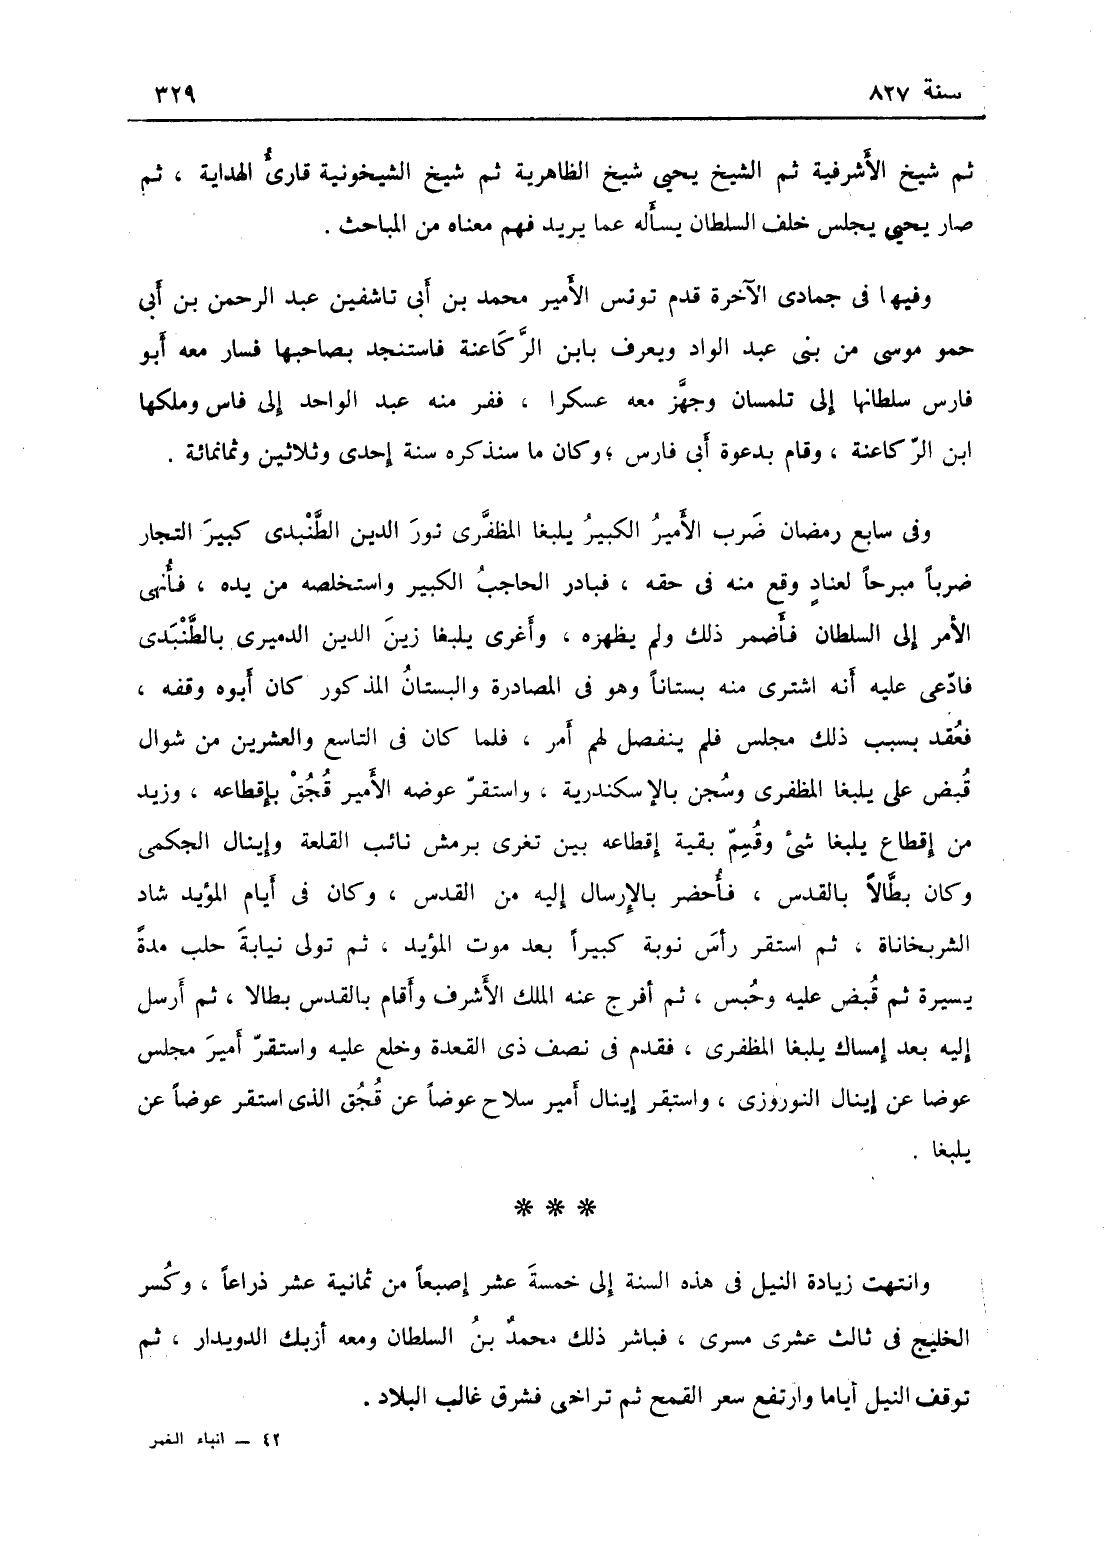 سنة ٨٢٧
٣٢٩
ثم شيخ الأَشرفية ثم الشيخ يحيى شيخ الظاهرية ثم شيخ الشيخونية قارىُّ الهداية ، ثم
صار يحيى يجلس خلف السلطان يسأَله عما يريد فهم معناه من المباحث .
وفيها فى جمادى الآخرة قدم تونس الأَمير محمد بن أَبى تاشفين عبد الرحمن بن أَبى
حمو موسى من بنى عبد الواد ويعرف بابن الرَّكَاعنة فاستنجد بصاحبها فسار معه أَبو
فارس سلطانها إلى تلمسان وجهَّز معه عسكرا ، ففر منه عبد الواحد إلى فاس وملكها
ابن الرّكاعنة ، وقام بدعوة أَبى فارس ؛ وكان ما سنذكره سنة إحدى وثلاثين وثمانمائة .
وفى سابع رمضان ضَرب الأَميرُ الكبيرُ يلبغا المظفَّرى نورَ الدين الطَّنْبدى كبيرَ التجار
ضرباً مبرحاً لعنادٍ وقع منه فى حقه ، فبادر الحاجبُ الكبير واستخلصه من يده ، فأُنهى
الأمر إلى السلطان فأَضمر ذلك ولم يظهره ، وأَغرى يلبغا زينَ الدين الدميرى بالطَّنْبَدى
فادّعى عليه أَنه اشترى منه بستاناً وهو فى المصادرة والبستانُ المذكور كان أَبوه وقفه ،
فعُقد بسبب ذلك مجلس فلم ينفصل لهم أَمر ، فلما كان فى التاسع والعشرين من شوال
قُبض على يلبغا المظفرى وسُجن بالإسكندرية ، واستقرّ عوضه الأَمير قُجُقْ بإقطاعه ، وزيد
من إقطاع يلبغا شئ وقُسِمّ بقية إقطاعه بين تغرى برمش نائب القلعة وإينال الجكمى
وكان بطَّالاً بالقدس ، فأُحضر بالإرسال إليه من القدس ، وكان فى أَيام المؤيد شاد
الشربخاناة ، ثم استقر رأسَ نوبة كبيراً بعد موت المؤيد ، ثم تولى نيابةَ حلب مدةً
يسيرة ثم قُبض عليه وحُبس ، ثم أفرج عنه الملك الأَشرف وأَقام بالقدس بطالا ، ثم أَرسل
إليه بعد إمساك يلبغا المظفرى ، فقدم فى نصف ذى القعدة وخلع عليه واستقرّ أَميرَ مجلس
عوضا عن إينال النوروزى ، واستقر إينال أمير سلاح عوضاً عن قُجُق الذى استقر عوضاً عن
يلبغا .
* * *
وانتهت زيادة النيل فى هذه السنة إلى خمسةَ عشر إصبعاً من ثمانية عشر ذراعاً ، وكُسر
الخليج فى ثالث عشرى مسرى ، فباشر ذلك محمدٌ بنُ السلطان ومعه أزبك الدويدار ، ثم
توقف النيل أياما وارتفع سعر القمح ثم تراخى فشرق غالب البلاد .
٤٢ – انباء الغمر